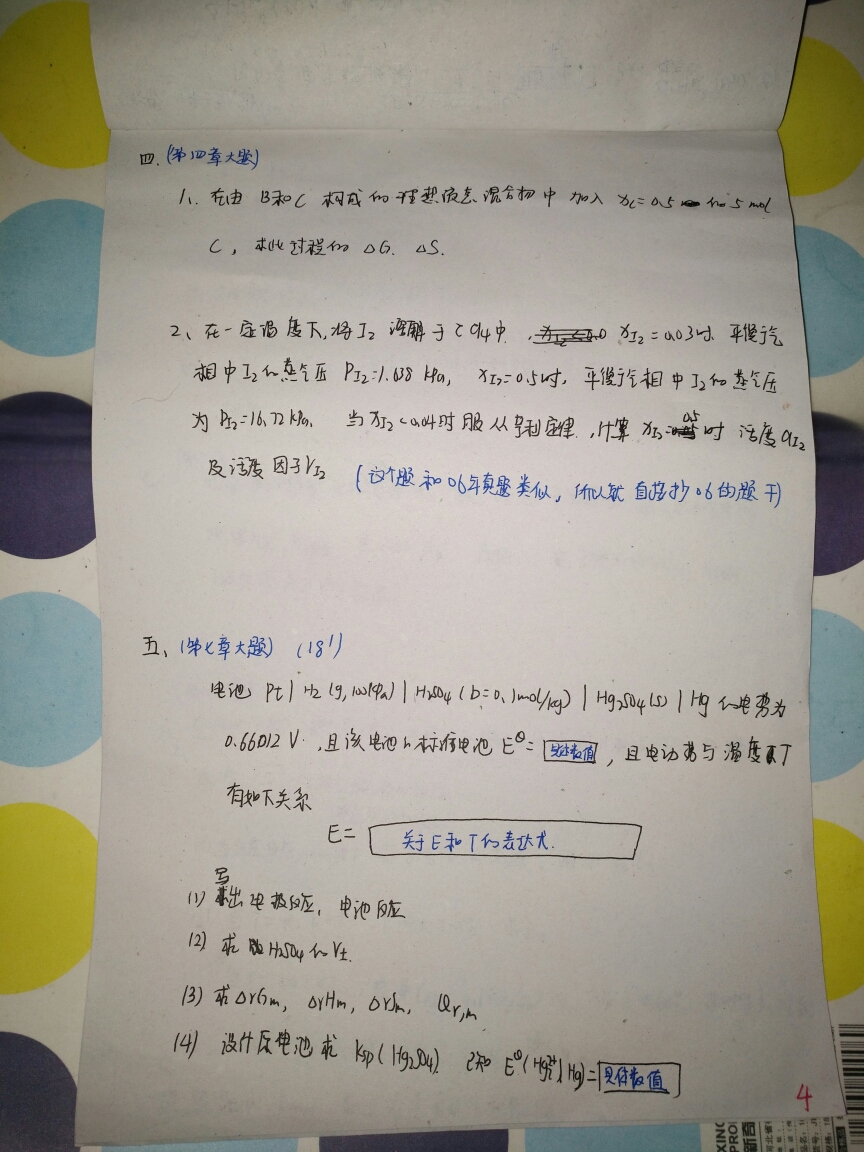 四. (第四章大题)
1. 在由 B和C 构成的理想液态混合物中 加入 xC=0.5 的 5 mol
C, 求此过程的 ΔG. ΔS.
2、在一定温度下,将 I2 溶解于 CCl4中. xI2 = 0.03时. 平衡于气
相中 I2的蒸气压 PI2=1.638 kPa, xI2=0.5时, 平衡于气相中 I2的蒸气压
为 PI2=16.72 kPa. 当 xI2<0.04时服从亨利定律,计算 xI2=0.5时 活度 aI2
及活度因子γI2 (这个题和06年真题类似, 所以就直接抄06的题干)
五、(第七章大题) (18')
电池 Pt | H2 (g, 100kPa) | H2SO4 (b=0.1mol/kg) | Hg2SO4(s) | Hg 的电势为
0.66012 V. ,且该电池的标准电池 E⊖= 具体数值 , 且电动势与温度T
有如下关系
E= 关于E和T的表达式.
(1) 写出电极反应, 电池反应
(2) 求 H2SO4的γ±.
(3) 求 ΔrGm, ΔrHm, ΔrSm, Qr,m
(4) 设计原电池求 Ksp(Hg2SO4) 已知 E⊖(Hg2 2+|Hg)= 具体数值
4
XINC
PRO
新奇